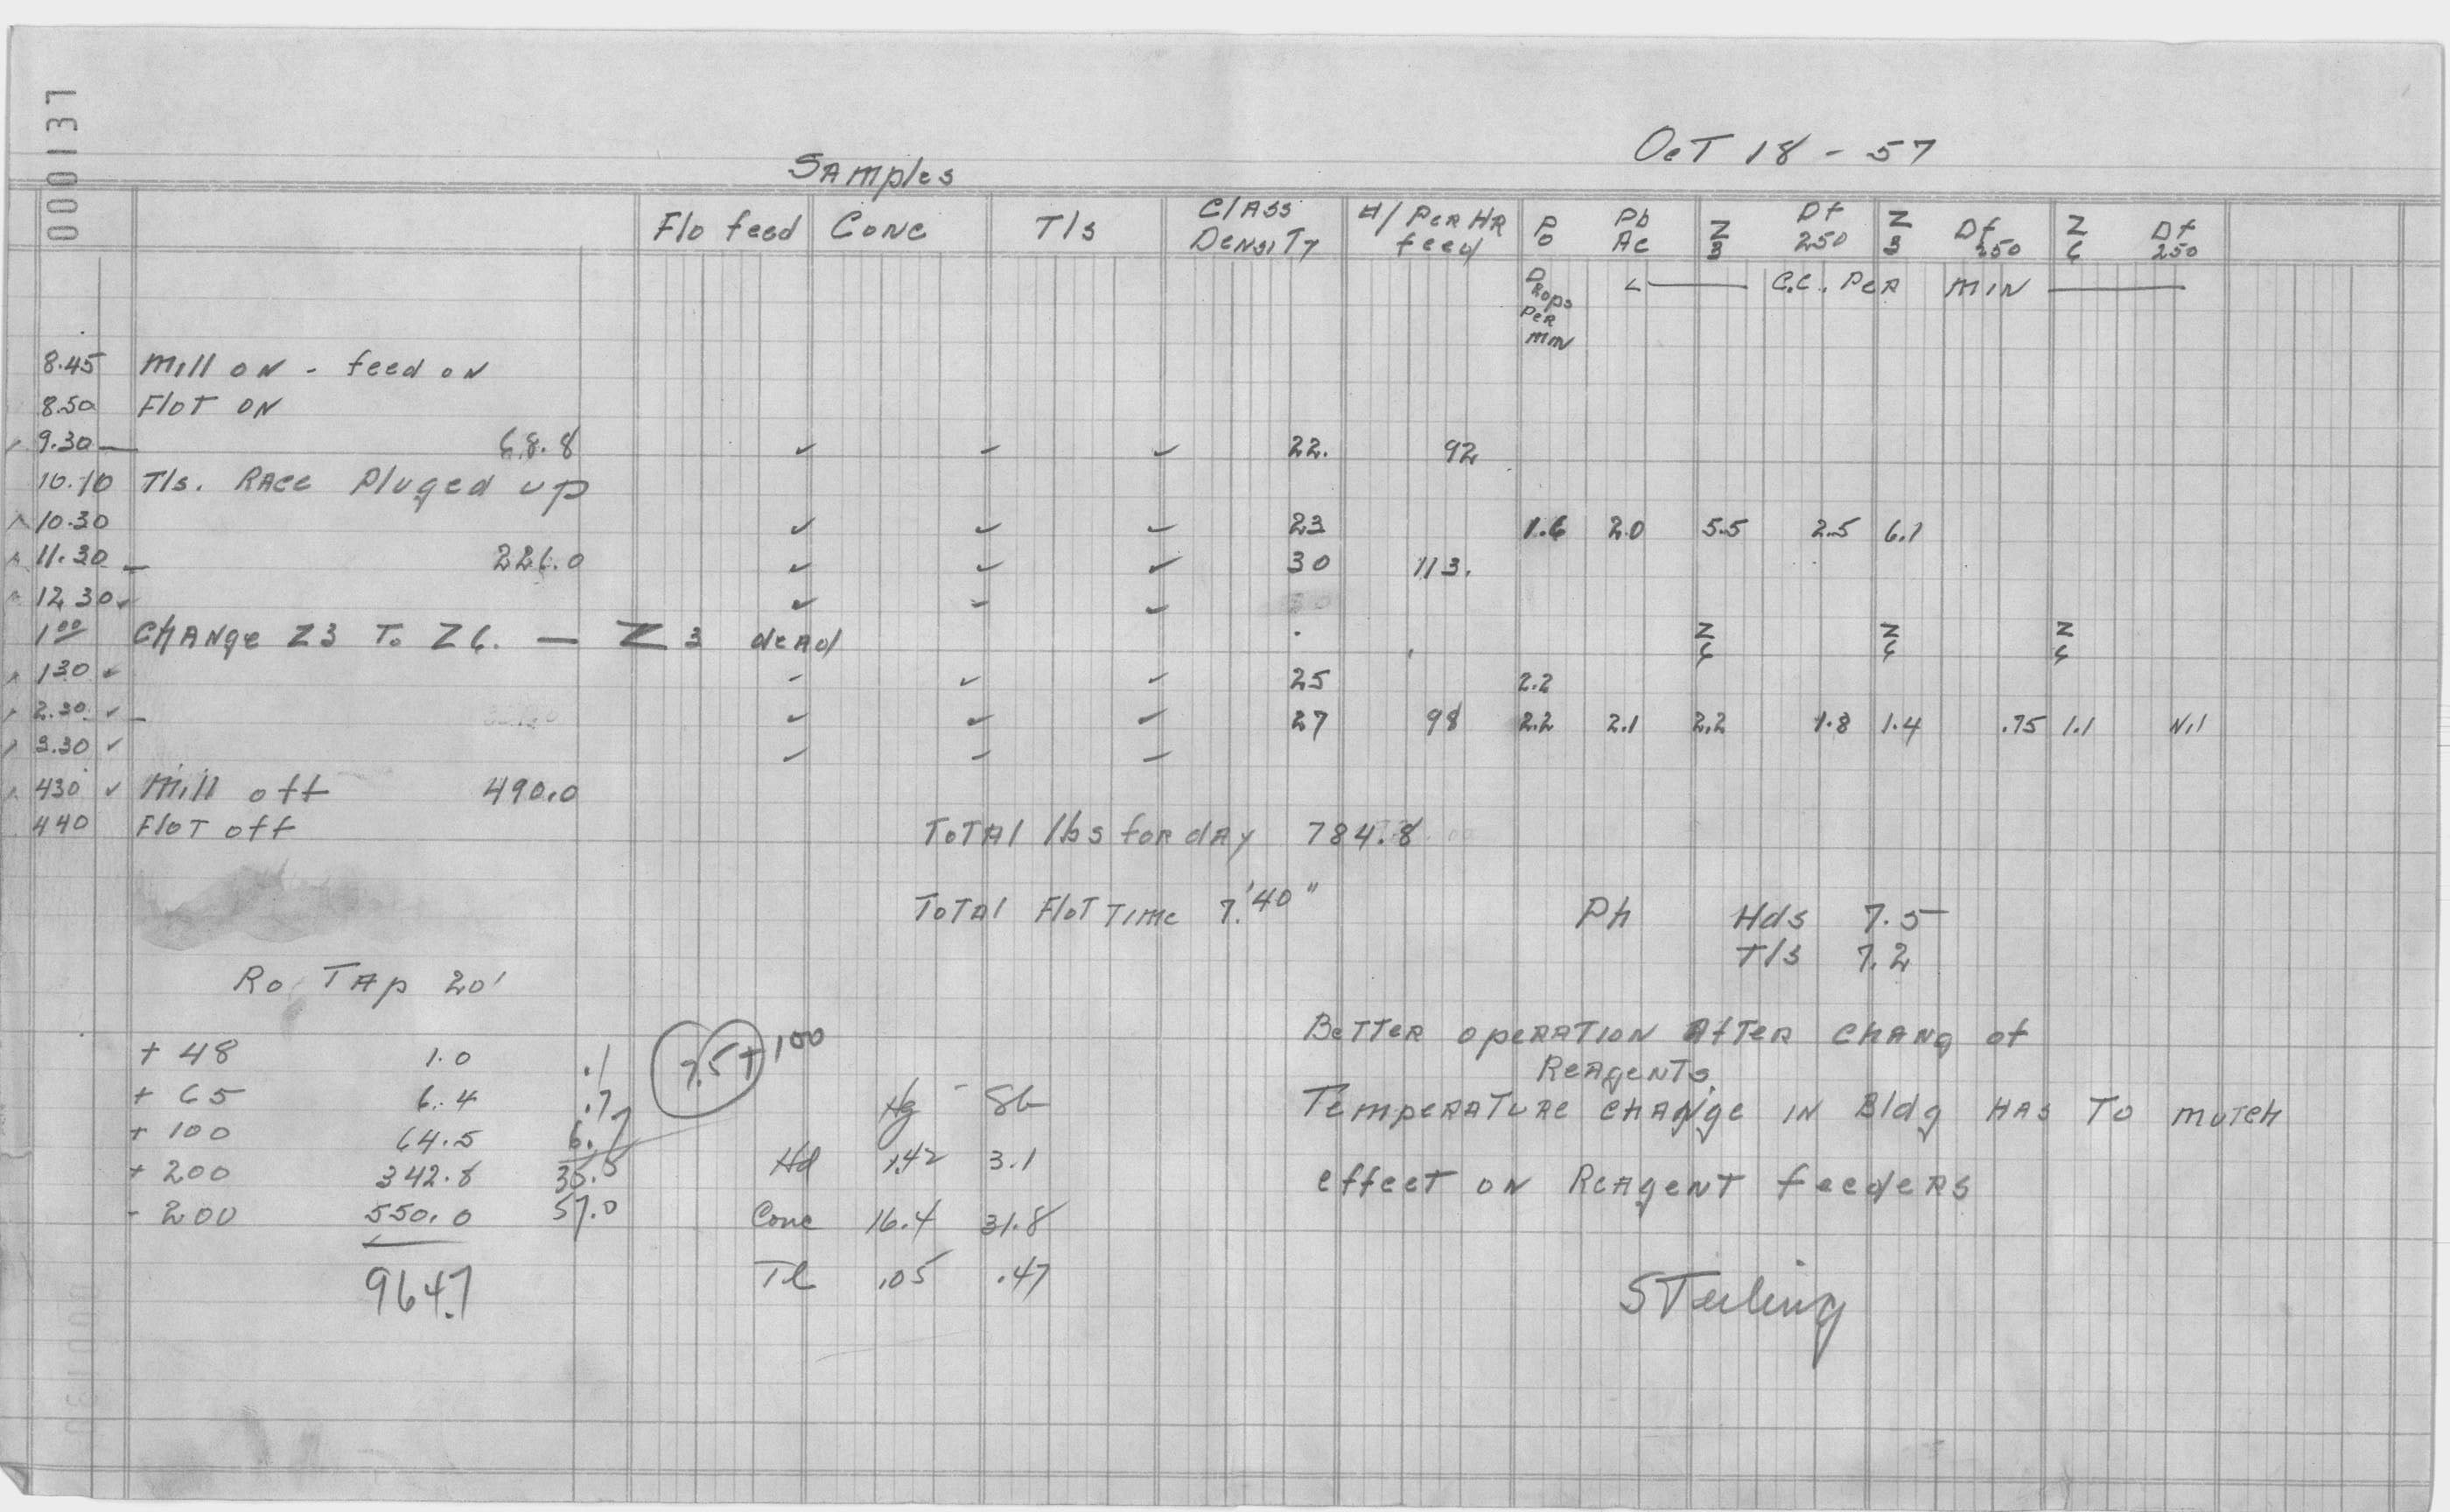 0000137
OcT 18 - 57
SAmples
Flo feed Conc T/s ClASS DensiTy #/ PeR HR feed Po Pb Ac Z3 Df 250 Z3 Df 250 Z6 Df 250
DRops PeR min <—— C.C. PeR min ——
8.45 Mill oN - feed oN
8.50 FloT ON
9.30 — 68.8 ✓ ✓ ✓ 22. 92
10.10 T/s. RAce Pluged up
10.30 ✓ ✓ ✓ 23 1.6 2.0 5.5 2.5 6.1
11.30 — 226.0 ✓ ✓ ✓ 30 113.
12 30 ✓ ✓ ✓ ✓
1 00 CHANge Z3 To Z6. — Z3 deAd Z6 Z6 Z6
130 ✓ ✓ ✓ ✓ 25 2.2
2.30 ✓ — ✓ ✓ ✓ 27 98 2.2 2.1 2.2 1.8 1.4 .75 1.1 Nil
3.30 ✓ ✓ ✓ ✓
430 ✓ Mill off 490.0
440 FloT off
ToTAl lbs foR dAy 784.8
ToTAl FloT Time 7.'40"
Ph Hds 7.5
T/s 7.2
Ro TAp 20'
+ 48 1.0 .1
+ 65 6.4 .7
+ 100 64.5 6.7
+ 200 342.8 35.5
- 200 550.0 57.0
964.7
7.5 + 100
Hg - Sb
Hd 1.42 3.1
Conc 16.4 31.8
Tl .05 .47
BeTTeR opeRATioN AfTeR CHANg of
ReAgeNTs.
TempeRATuRe CHANge iN Bldg HAs To muTcH
effecT oN ReAgeNT feedeRs
STerling